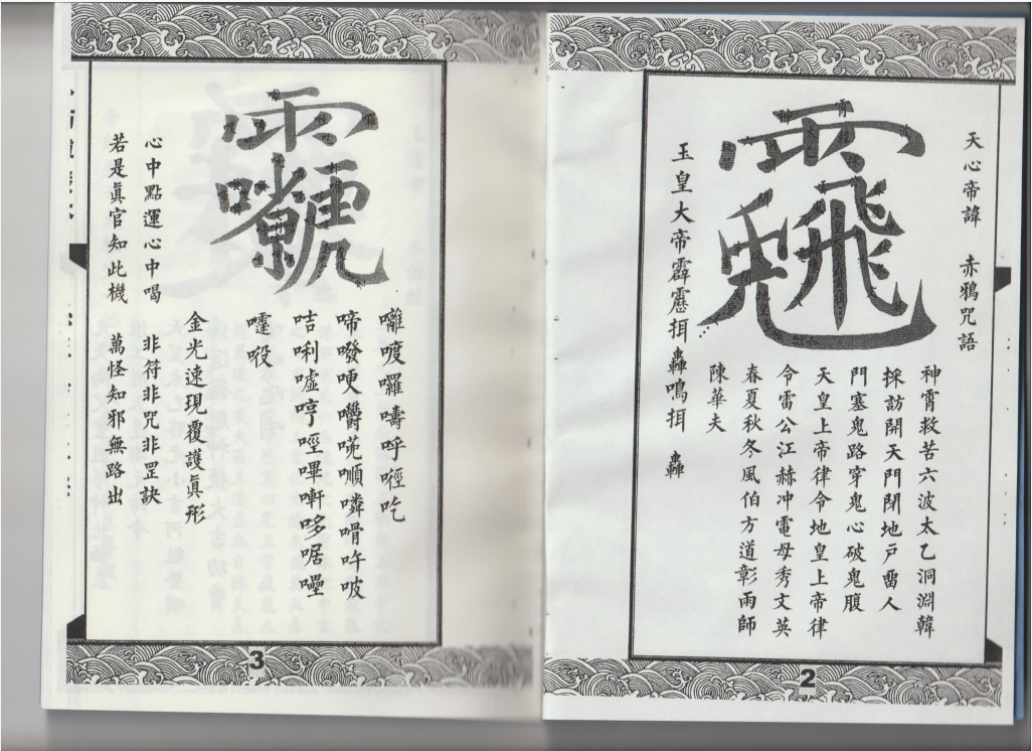 天心帝諱　赤鴉咒語
神霄救苦六波太乙洞淵韓
採訪開天門閉地戸畱人
門塞鬼路穿鬼心破鬼腹
天皇上帝律令地皇上帝律
令雷公江赫冲電母秀文英
春夏秋冬風伯方道彰雨師
陳華夫
玉皇大帝霹靂揖轟鳴揖　轟
2
囉嚋呼吃
啼哽
咭唎噓哼哆啹
金光速現覆護眞形
心中點運心中喝　非符非咒非罡訣
若是眞官知此機　萬怪知邪無路出
3